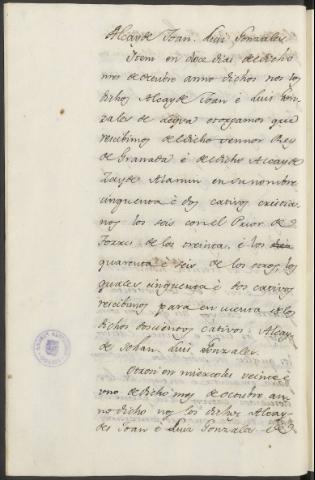 Alcayde Joan. Luis Gonzales.
Iten en doce dias del dicho
mes de octubre anno dicho nos los
dichos Alcayde Joan è Luis Gon-
zales de  otorgamos que
recibimos del dicho sennor Rey
de Granada è del dicho Alcayde
Zayde Alamin en su nombre
cinquenta è dos cativos cristia-
nos los seis con el Prior de
Torres de los treinta, è los
quarenta è seis de los otros, los
quales cinquenta è dos cativos
recibimos para en cuenta de los
dichos doscientos cativos. Alcay-
de Johan. Luis Gonzales.
Otrosi en miercoles veinte è
uno de dicho mes de octubre an-
no dicho nos los dichos Alcay-
des Joan è Luis Gonzales